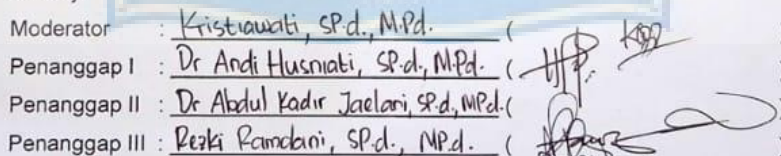 Moderator : Kristiawati, SP.d., M.Pd. (
Penanggap I : Dr Andi Husniati, SP.d., M.Pd. (
Penanggap II : Dr Abdul Kadir Jaelani, SP.d., MPd. (
Penanggap III : Rezki Ramdani, SP.d., MP.d. (